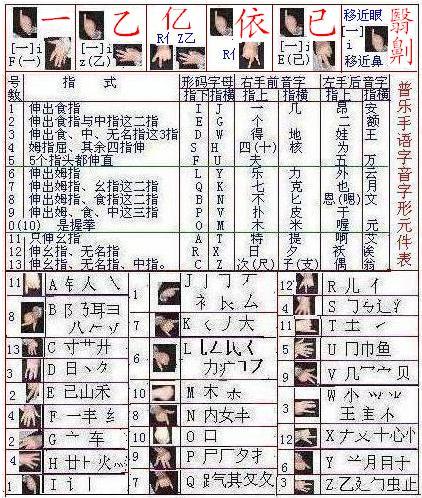 一 乙 亿 依 已 移近眼 翳劓
[一]i [一]i R亻 Z乙 [一]i [一]i
F(一) z(乙) R亻 E(己) 移近鼻
普乐手语字音字形元件表
号 指 式 形码字母 右手前音字 左手后音字
数 指下 指横 指上 指横 指上 指横
1 伸出食指 I J 一 几 昂 安
2 伸出食指与中指这二指 E G 个 二 额
3 伸出食、中、无名指这3指 D W 得 地 娃 王
4 姆指屈、其余四指伸 S H 四(十) 核 为
5 5个指头都伸直 F U 夫 五 万
6 伸出姆指 L Y 乐 力 外 云
7 伸出姆指、幺指这二指 Q K 七 克 也 月
8 伸出姆指、食指这二指 B N 不 匕 恩(嗯) 文
9 伸出姆、食、中这三指 P V 扑 皮 于
0(10) 是握拳 O M 木 米 喔 元
11 只伸幺指 A T 特 提 啊 艾
12 伸幺指、无名指 R X 日 夕 袄 埃
13 伸幺指、无名指、中指。 C Z 次(尺) 子(支) 偶 翁
11 A 车 人 乀
8 B 阝 彐 耳
13 C 寸 艹 廾
3 D 日 丶
2 E 已 山 禾
4 F 一 丰 纟
2 G 亠 车
4 H 廿 卜 火 灬
1 I 氵 讠 丨
1 J 丿 冂
7 K 大
6 L 力 疒
10 M 木
8 N 内 女
10 O 口
9 P 尸 厂 夕 扌
7 Q 气 其 欠 攵
12 R 儿 亻
4 S
11 T 土
5 U 冂 巾 鱼
9 V 几 宀 贝
3 W 小
王 主
12 X 十 心 忄
6 Y 月 目
3 Z 乙 辶 勹 虫 止